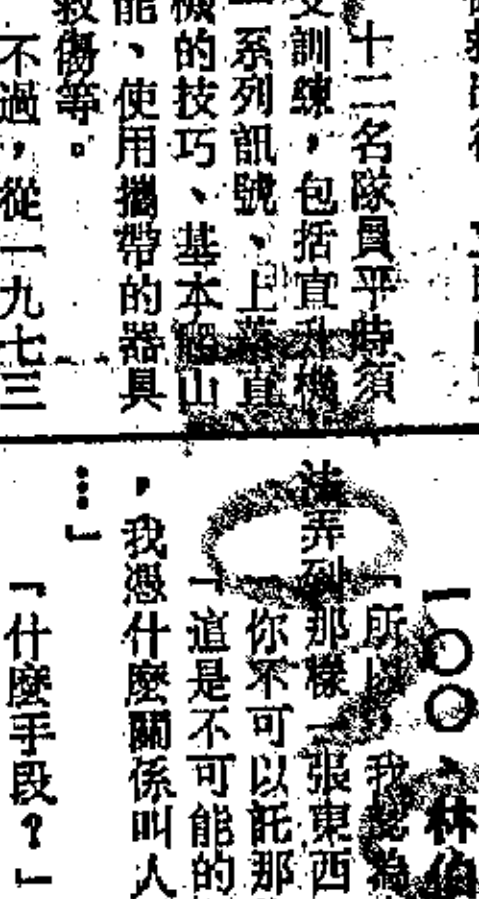 十二名隊員平時須
訓練，包括直升機
一系列訊號、上落直
機的技巧、基本爬山
能、使用攜帶的器具
救傷等。
不過，從一九七三
一〇〇、林伯
「所以，我認為
法弄到那樣一張東西
「你不可以託那
「這是不可能的
，我憑什麼關係叫人
…」
「什麼手段？」